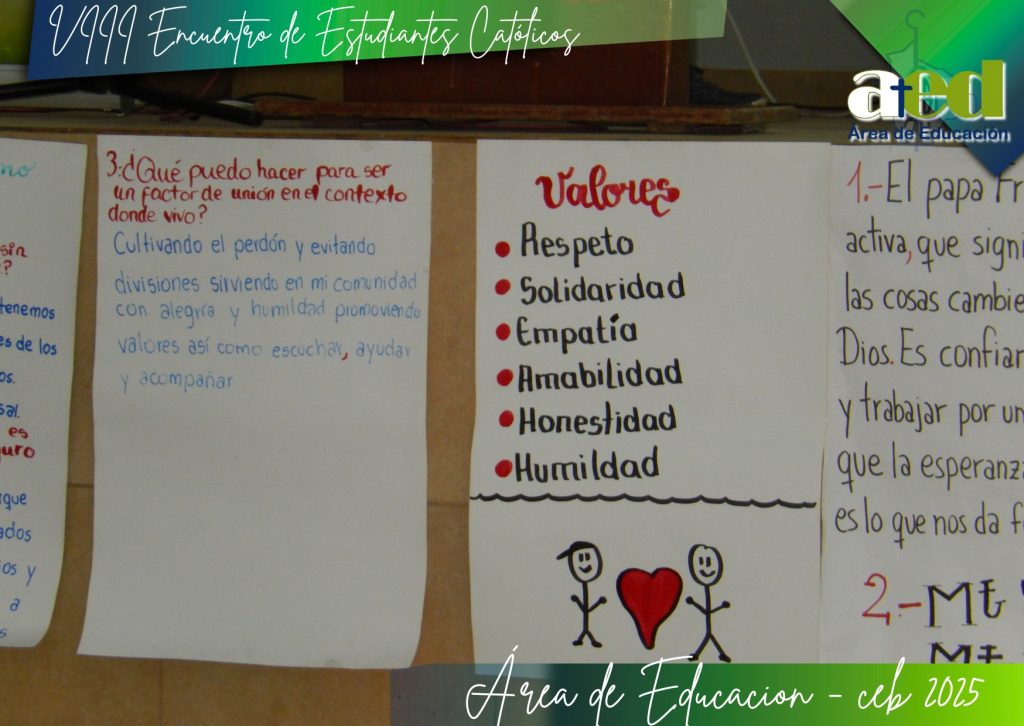 VIII Encuentro de Estudiantes Católicos
ated
Área de Educación
sin
?
tenemos
es de los
os.
sal.
es
uro
rque
ados
ios y
a
s
3.¿Qué puedo hacer para ser
un factor de unión en el contexto
donde vivo?
Cultivando el perdón y evitando
divisiones sirviendo en mi comunidad
con alegría y humildad promoviendo
valores así como escuchar, ayudar
y acompañar
Valores
• Respeto
• Solidaridad
• Empatía
• Amabilidad
• Honestidad
• Humildad
1.- El papa Fr
activa, que signi
las cosas cambie
Dios. Es confiar
y trabajar por un
que la esperanza
es lo que nos da f
2.- Mt
Mt
Área de Educacion - ceb 2025